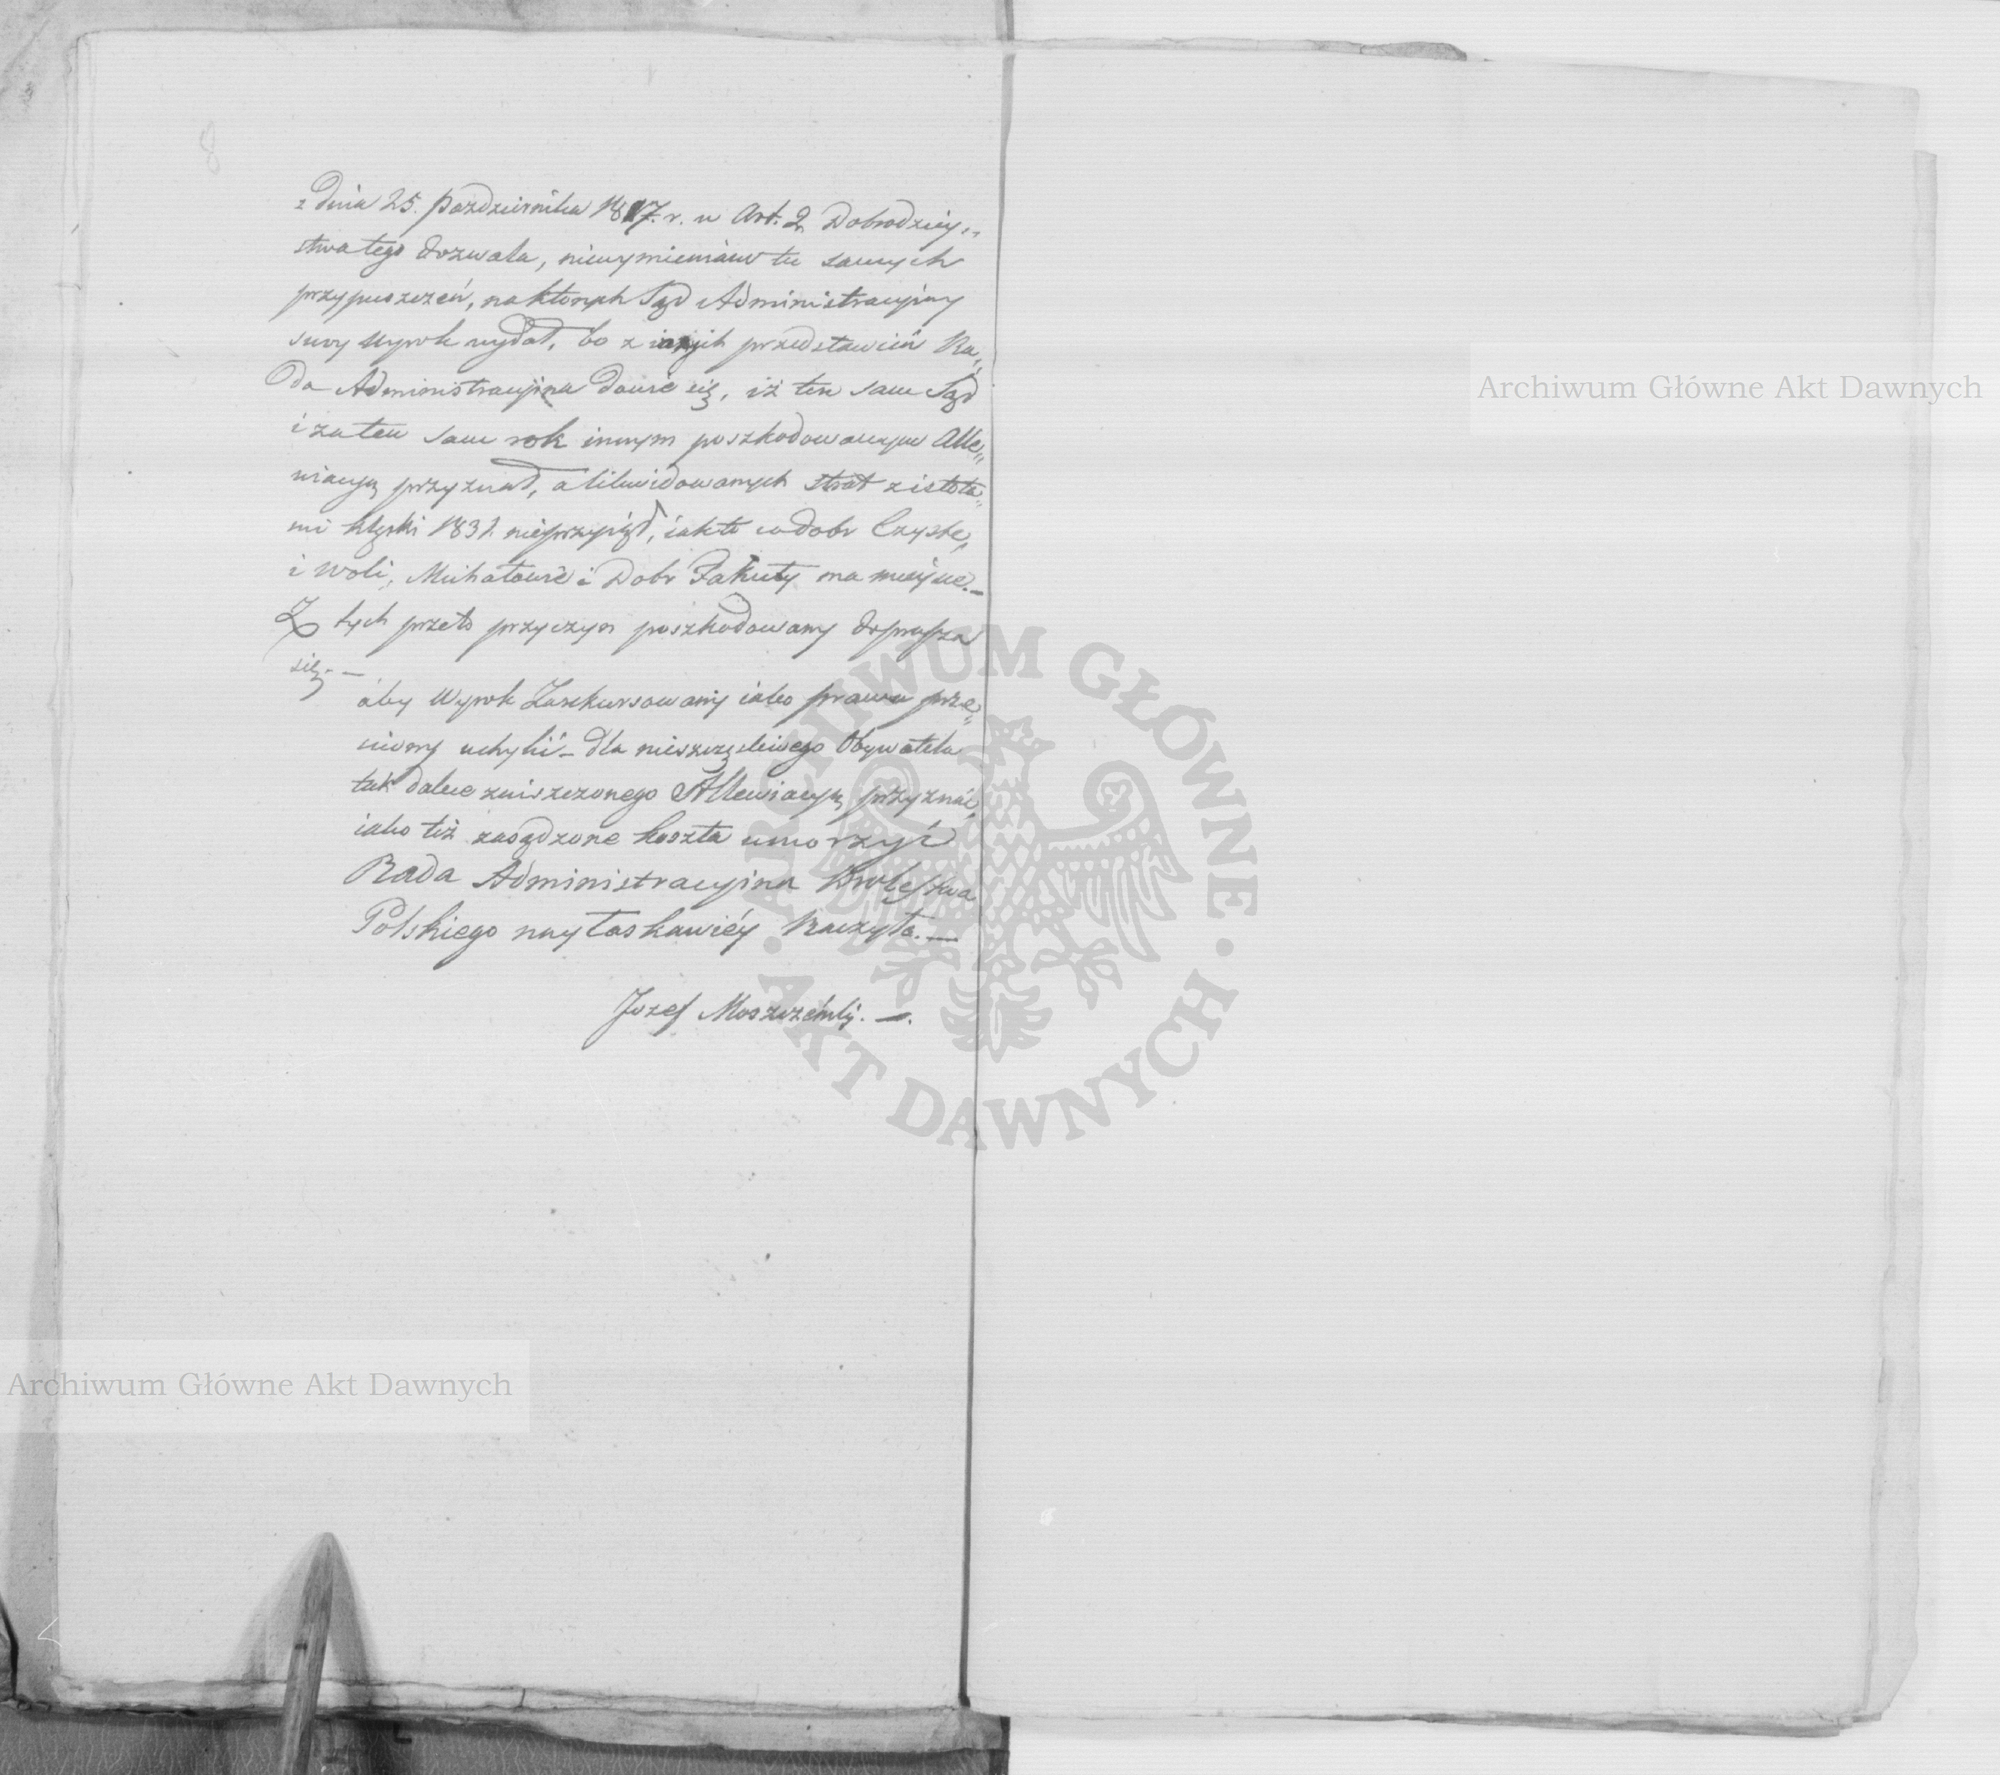 8
z dnia 25. Października 1817. r. w Art. 2. Dobrodziey„
stwa tego dozwala, niewymieniaiąc tu samych
przypuszczeń, na których Sąd Administracyiny
swoy Wyrok wydał, bo z innych przedstawień Ra„
da Administracyina dowie się, iż ten sam Sąd
i za ten sam rok innym poszkodowanym Alle„
wiacyą przyznał, a likwidowanych strat z istota„
mi klęski 1831. nieprzyiął, iak to co do dobr Czyste,
i Woli, Michałowic i Dobr Załuty ma mieysce.—
Z tych przeto przyczyn poszkodowany doprasza
się.—
aby Wyrok Zarekursowany iako prawu prze„
ciwny uchylić – dla nieszczęsliwego Obywatela
tak dalece zniszczonego Allewiacyą przyznać,
iako też zasądzone koszta umorzyć
Rada Administracyina Krolestwa
Polskiego nayłaskawiéy Raczyła.—
Jozef Moszczeński.—.
Archiwum Główne Akt Dawnych
Archiwum Główne Akt Dawnych
ARCHIWUM GŁÓWNE
· AKT DAWNYCH ·